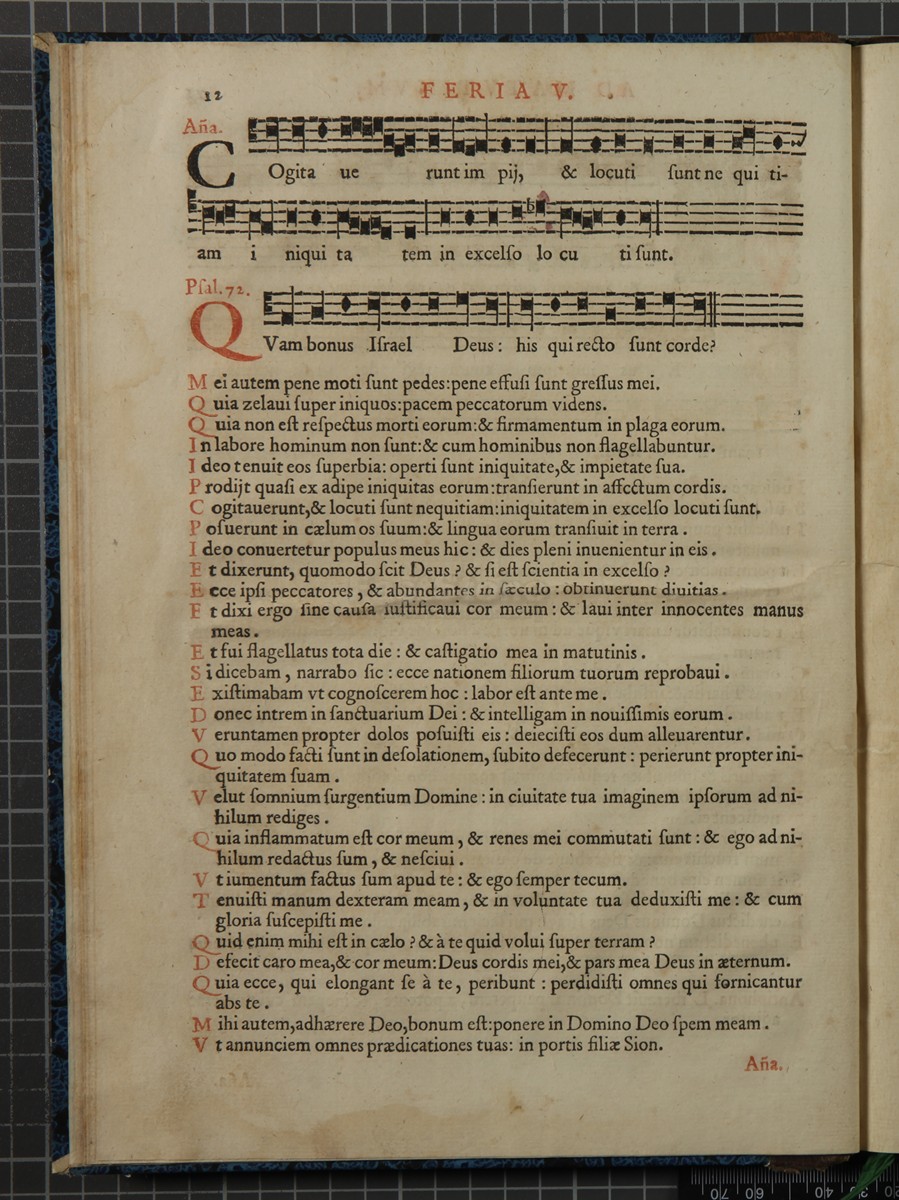 12
FERIA V.
Aña.
COgita ue runt im pij, & locuti ſunt ne qui ti-
am i niqui ta tem in excelſo lo cu ti ſunt.
Pſal. 72.
QVam bonus Iſrael Deus: his qui recto ſunt corde?
Mei autem pene moti ſunt pedes: pene effuſi ſunt greſſus mei.
Quia zelaui ſuper iniquos: pacem peccatorum videns.
Quia non eſt reſpectus morti eorum: & firmamentum in plaga eorum.
In labore hominum non ſunt: & cum hominibus non flagellabuntur.
Ideo tenuit eos ſuperbia: operti ſunt iniquitate, & impietate ſua.
Prodijt quaſi ex adipe iniquitas eorum: tranſierunt in affectum cordis.
Cogitauerunt, & locuti ſunt nequitiam: iniquitatem in excelſo locuti ſunt.
Poſuerunt in cælum os ſuum: & lingua eorum tranſiuit in terra.
Ideo conuertetur populus meus hic: & dies pleni inuenientur in eis.
Et dixerunt, quomodo ſcit Deus? & ſi eſt ſcientia in excelſo?
Ecce ipſi peccatores, & abundantes in ſæculo: obtinuerunt diuitias.
Et dixi ergo ſine cauſa iuſtificaui cor meum: & laui inter innocentes manus
meas.
Et fui flagellatus tota die: & caſtigatio mea in matutinis.
Si dicebam, narrabo ſic: ecce nationem filiorum tuorum reprobaui.
Exiſtimabam vt cognoſcerem hoc: labor eſt ante me.
Donec intrem in ſanctuarium Dei: & intelligam in nouiſſimis eorum.
Veruntamen propter dolos poſuiſti eis: deieciſti eos dum alleuarentur.
Quo modo facti ſunt in deſolationem, ſubito defecerunt: perierunt propter ini-
quitatem ſuam.
Velut ſomnium ſurgentium Domine: in ciuitate tua imaginem ipſorum ad ni-
hilum rediges.
Quia inflammatum eſt cor meum, & renes mei commutati ſunt: & ego ad ni-
hilum redactus ſum, & neſciui.
Vt iumentum factus ſum apud te: & ego ſemper tecum.
Tenuiſti manum dexteram meam, & in voluntate tua deduxiſti me: & cum
gloria ſuſcepiſti me.
Quid enim mihi eſt in cælo? & à te quid volui ſuper terram?
Defecit caro mea, & cor meum: Deus cordis mei, & pars mea Deus in æternum.
Quia ecce, qui elongant ſe à te, peribunt: perdidiſti omnes qui fornicantur
abs te.
Mihi autem, adhærere Deo, bonum eſt: ponere in Domino Deo ſpem meam.
Vt annunciem omnes prædicationes tuas: in portis filiæ Sion.
Aña.